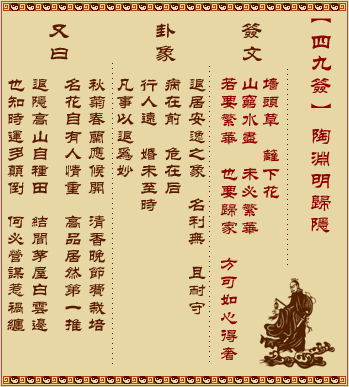 【四九簽】 陶淵明歸隱
簽文
牆頭草 籬下花
山窮水盡 未必繁華
若要繁華 也要歸家 方可如心得奢
卦象
退居安逸之象 名利無 且耐守
病在前 危在后
行人遠 婚未至時
凡事以退爲妙
又曰
秋菊春蘭應候開 清香晚節賴栽培
名花自有人情重 高品居然第一推
退隱高山自種田 結間茅屋白雲邊
也知時運多顛倒 何必營謀惹禍纏